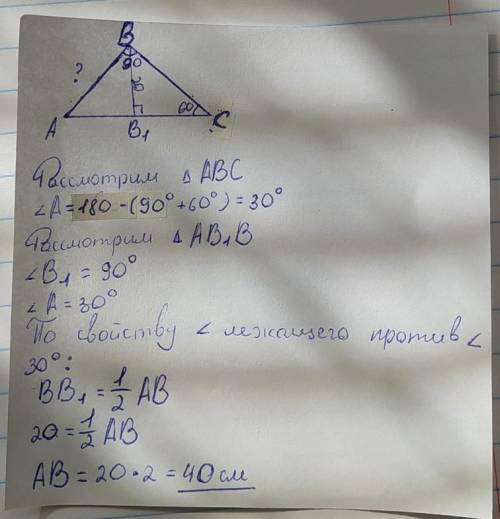 B
90
?
60
A
B₁
C
Рассмотрим △ ABC
∠A = 180 - (90° + 60°) = 30°
Рассмотрим △ AB₁B
∠B₁ = 90°
∠A = 30°
По свойству ∠ лежащего против ∠
30°:
BB₁ = 1/2 AB
20 = 1/2 AB
AB = 20 · 2 = 40 см